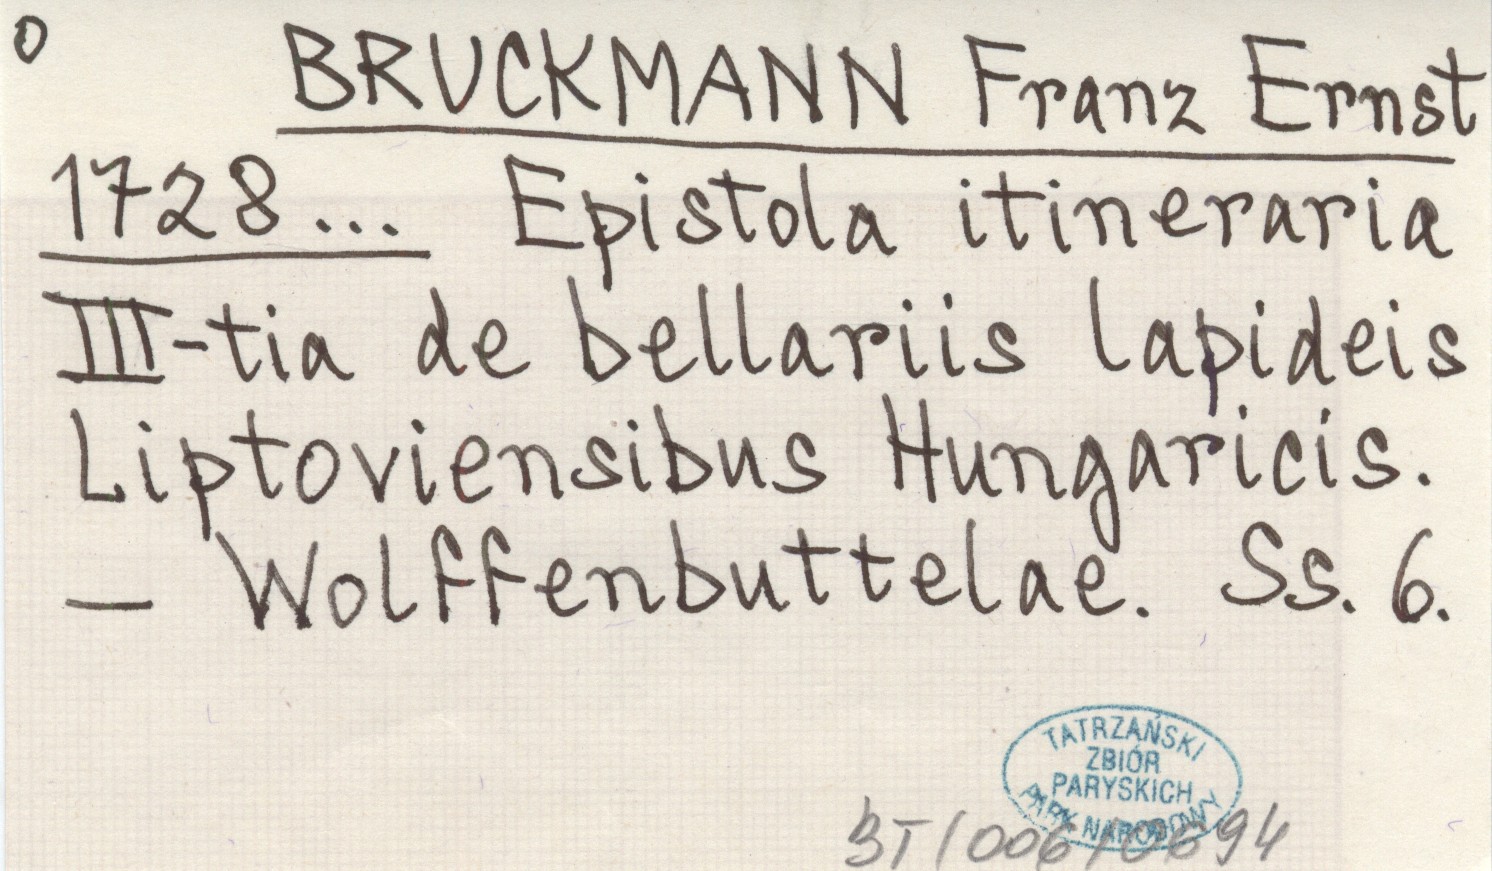 0 BRUCKMANN Franz Ernst
1728... Epistola itineraria
III-tia de bellariis lapideis
Liptoviensibus Hungaricis.
— Wolffenbuttelae. Ss. 6.
TATRZAŃSKI
ZBIÓR
PARYSKICH
PARK NARODOWY
BT/006/0694